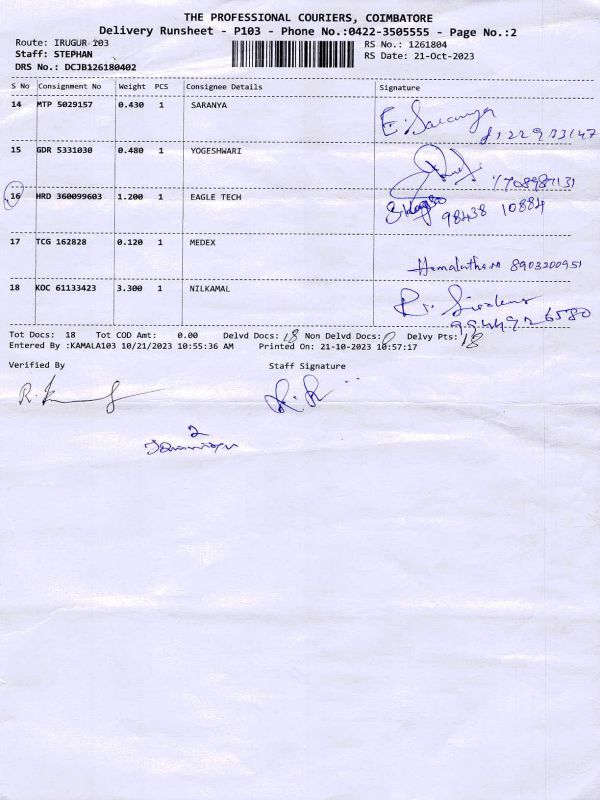 THE PROFESSIONAL COURIERS, COIMBATORE
Delivery Runsheet - P103 - Phone No.:0422-3505555 - Page No.:2
Route: IRUGUR 103
RS No.: 1261804
Staff: STEPHAN
RS Date: 21-Oct-2023
DRS No.: DCJB126180402
S No Consignment No Weight PCS Consignee Details Signature
14 MTP 5029157 0.430 1 SARANYA E. Saranya
15 GDR 5331030 0.480 1 YOGESHWARI 7708987131
16 HRD 360099603 1.200 1 EAGLE TECH 98438 10884
17 TCG 162828 0.120 1 MEDEX Hemalatha M 8903200951
18 KOC 61133423 3.300 1 NILKAMAL 9944926580
Tot Docs: 18 Tot COD Amt: 0.00 Delvd Docs: 18 Non Delvd Docs: 0 Delvy Pts: 18
Entered By :KAMALA103 10/21/2023 10:55:36 AM Printed On: 21-10-2023 10:57:17
Verified By Staff Signature
2